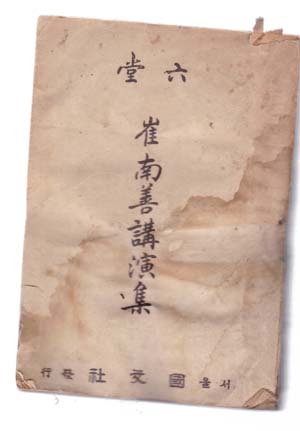 六堂
崔南善講演集
서울 國文社 發行